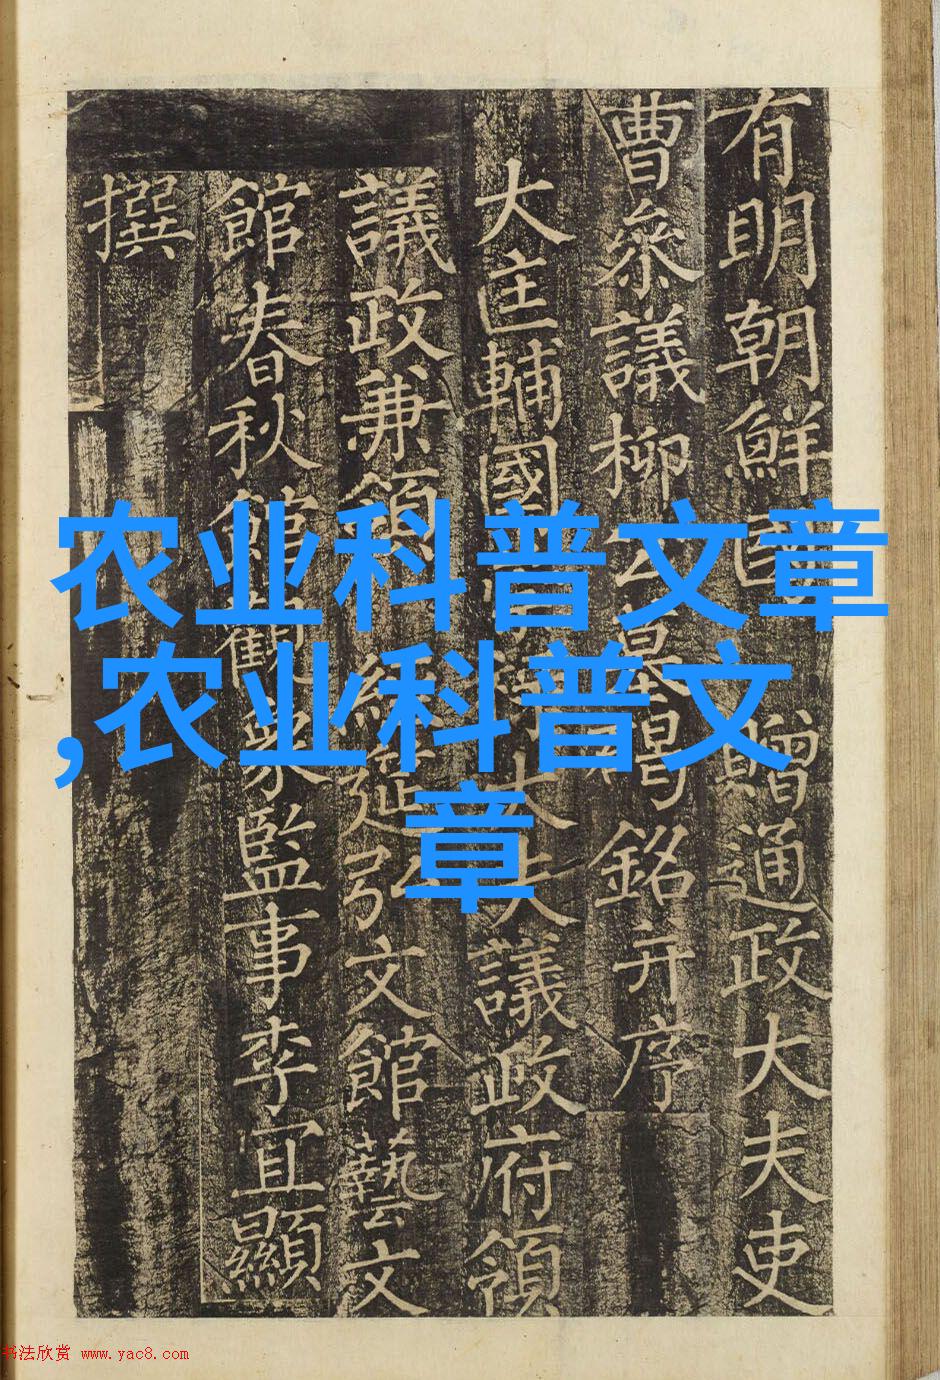 有明朝鮮國 贈通政大夫吏
曹叅議柳公墓碣銘并序
大匡輔國大夫議政府領
議政兼領 經筵弘文館藝文
館春秋館觀象監事李宜顯
撰
农业科普文章
,农业科普文
章
书法欣赏 www.yac8.com